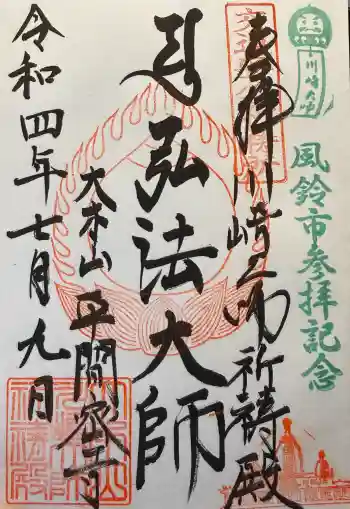 川崎大師
風鈴市参拝記念
奉拝
川崎大師祈祷殿
弘法大師
大本山平間密寺
令和四年七月九日